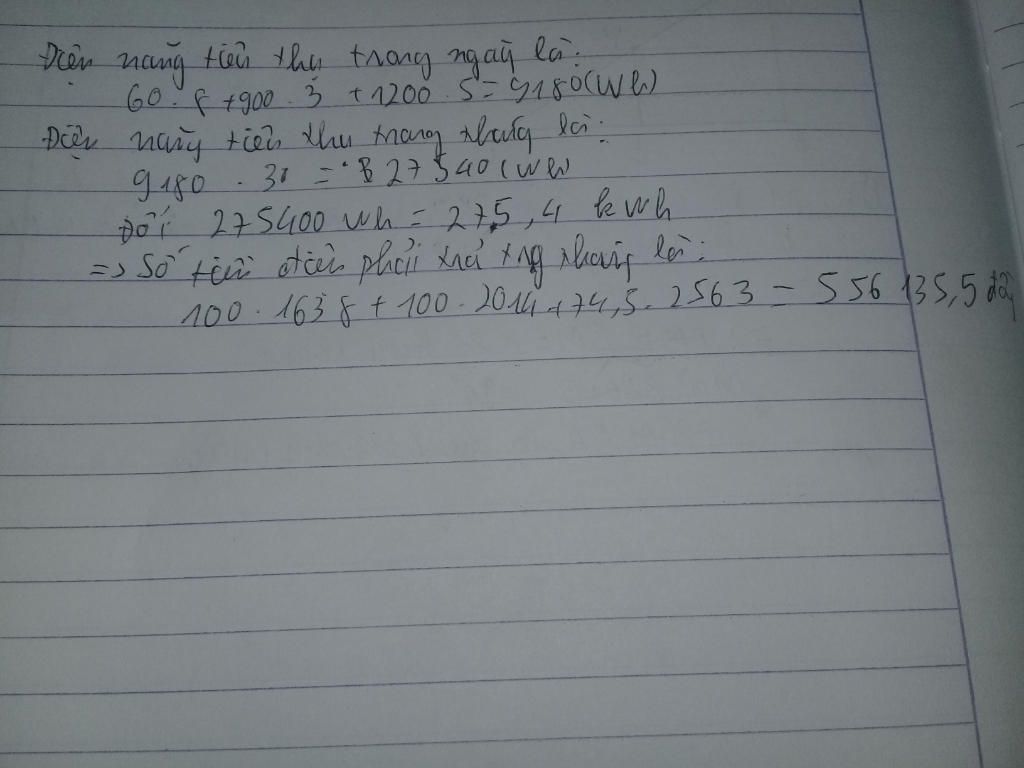 Điện năng tiêu thụ trong ngày là:
60 . 8 + 900 . 3 + 1200 . 5 = 9180 (Wh)
Điện năng tiêu thụ trong tháng là:
9180 . 30 = 27540 (Wh)
Đổi 275400 Wh = 275,4 kWh
=> Số tiền điện phải trả trg tháng là:
100 . 1638 + 100 . 2014 + 74,5 . 2563 = 556 135,5 đồng